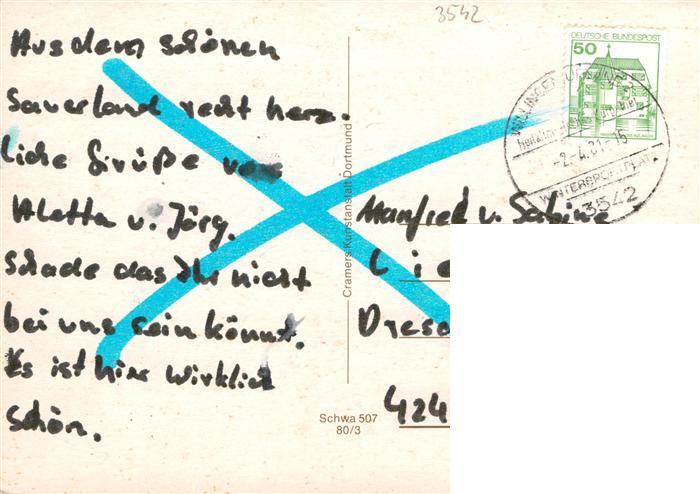 3542
Aus dem schönen
Sauerland recht herz-
liche Grüße von
Aletta u. Jörg.
Schade das Ihr nicht
bei uns sein könnt.
Es ist hier wirklich
schön.
Cramers Kunstanstalt Dortmund
Schwa 507
80/3
DEUTSCHE BUNDESPOST
50
WILLINGEN
-2.-4.81-15
WINTERSPORTPLATZ
3542
Manfred u. Sabine
Lie
Dresd
424